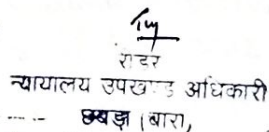 रीडर
न्यायालय उपखण्ड अधिकारी
छबड़ा (बारा)